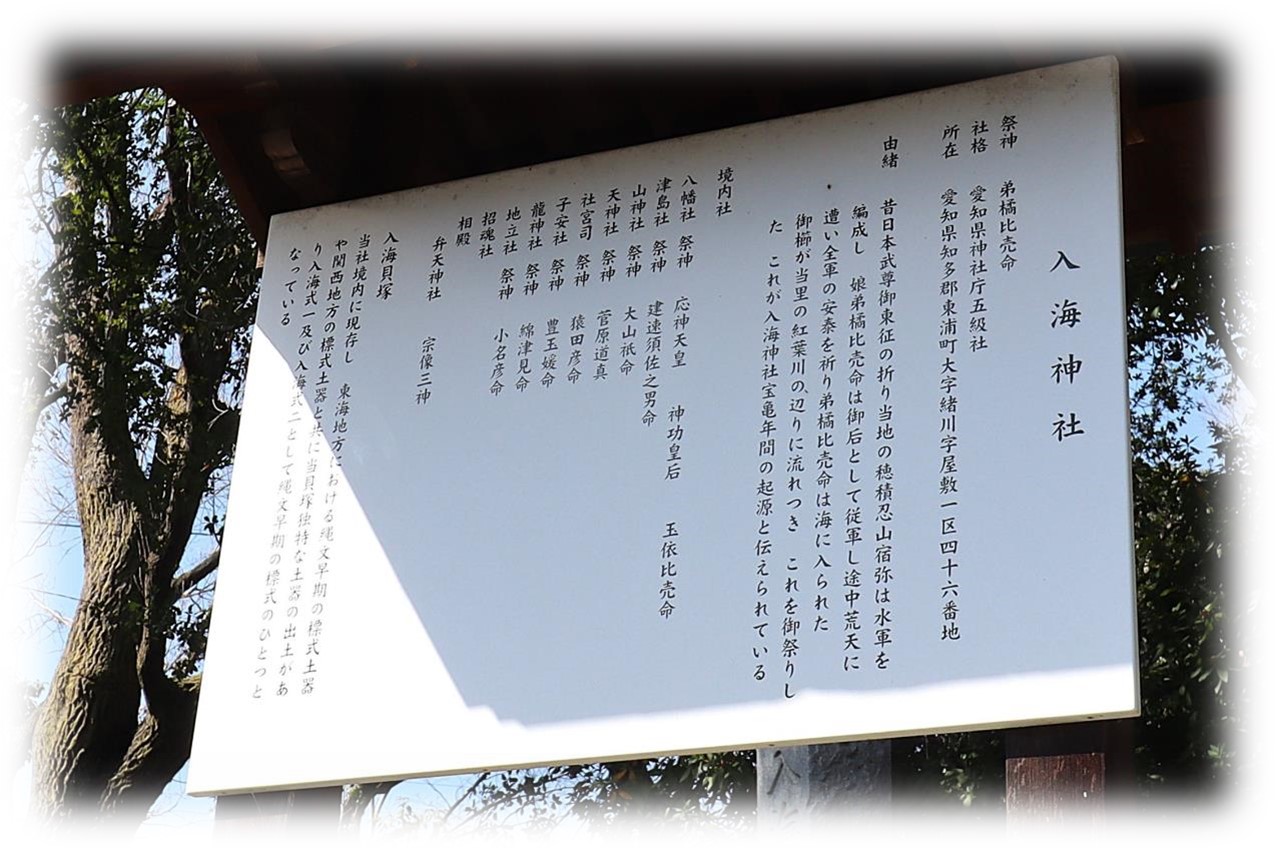 入海神社
祭神　弟橘比売命
社格　愛知県神社庁五級社
所在　愛知県知多郡東浦町大字緒川字屋敷一区四十六番地
由緒　昔日本武尊御東征の折り当地の穂積忍山宿弥は水軍を
編成し　娘弟橘比売命は御后として従軍し途中荒天に
遭い全軍の安泰を祈り弟橘比売命は海に入られた
御櫛が当里の紅葉川の辺りに流れつき　これを御祭りし
た　これが入海神社宝亀年間の起源と伝えられている
境内社
八幡社　祭神　応神天皇　神功皇后　玉依比売命
津島社　祭神　建速須佐之男命
山神社　祭神　大山祇命
天神社　祭神　菅原道真
社宮司　祭神　猿田彦命
子安社　祭神　豊玉媛命
龍神社　祭神　綿津見命
地立社　祭神　小名彦命
招魂社
相殿
弁天神社　宗像三神
入海貝塚
当社境内に現存し　東海地方における縄文早期の標式土器
や関西地方の標式土器と共に当貝塚独特な土器の出土があ
り入海式一及び入海式二として縄文早期の標式のひとつと
なっている